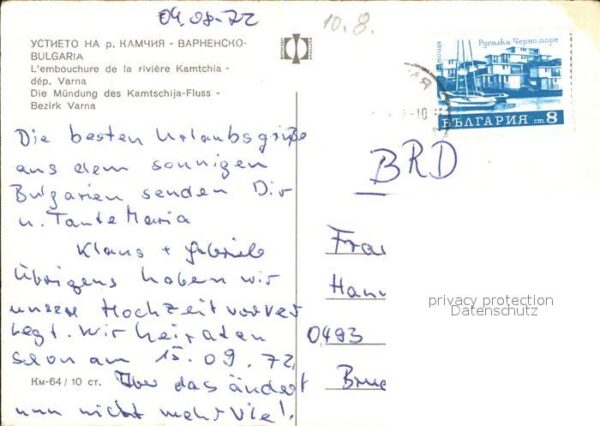 04.08.72
10.8.
УСТИЕТО НА р. КАМЧИЯ - ВАРНЕНСКО-
BULGARIA
L'embouchure de la rivière Kamtchia -
dép. Varna
Die Mündung des Kamtschija-Fluss -
Bezirk Varna
Die besten Urlaubsgrüße
aus dem sonnigen
Bulgarien senden Dir
u. Tante Maria
Klaus + Gabriele
Übrigens haben wir
unsere Hochzeit vorver
legt. Wir heiraten
schon am 15.09.72.
Aber das ändert
nun nicht mehr viel!
Км-64/10 ст.
поща
Русалка Черно море
БЪЛГАРИЯ ст. 8
BRD
Frau
Hann
0493
Brue
privacy protection
Datenschutz